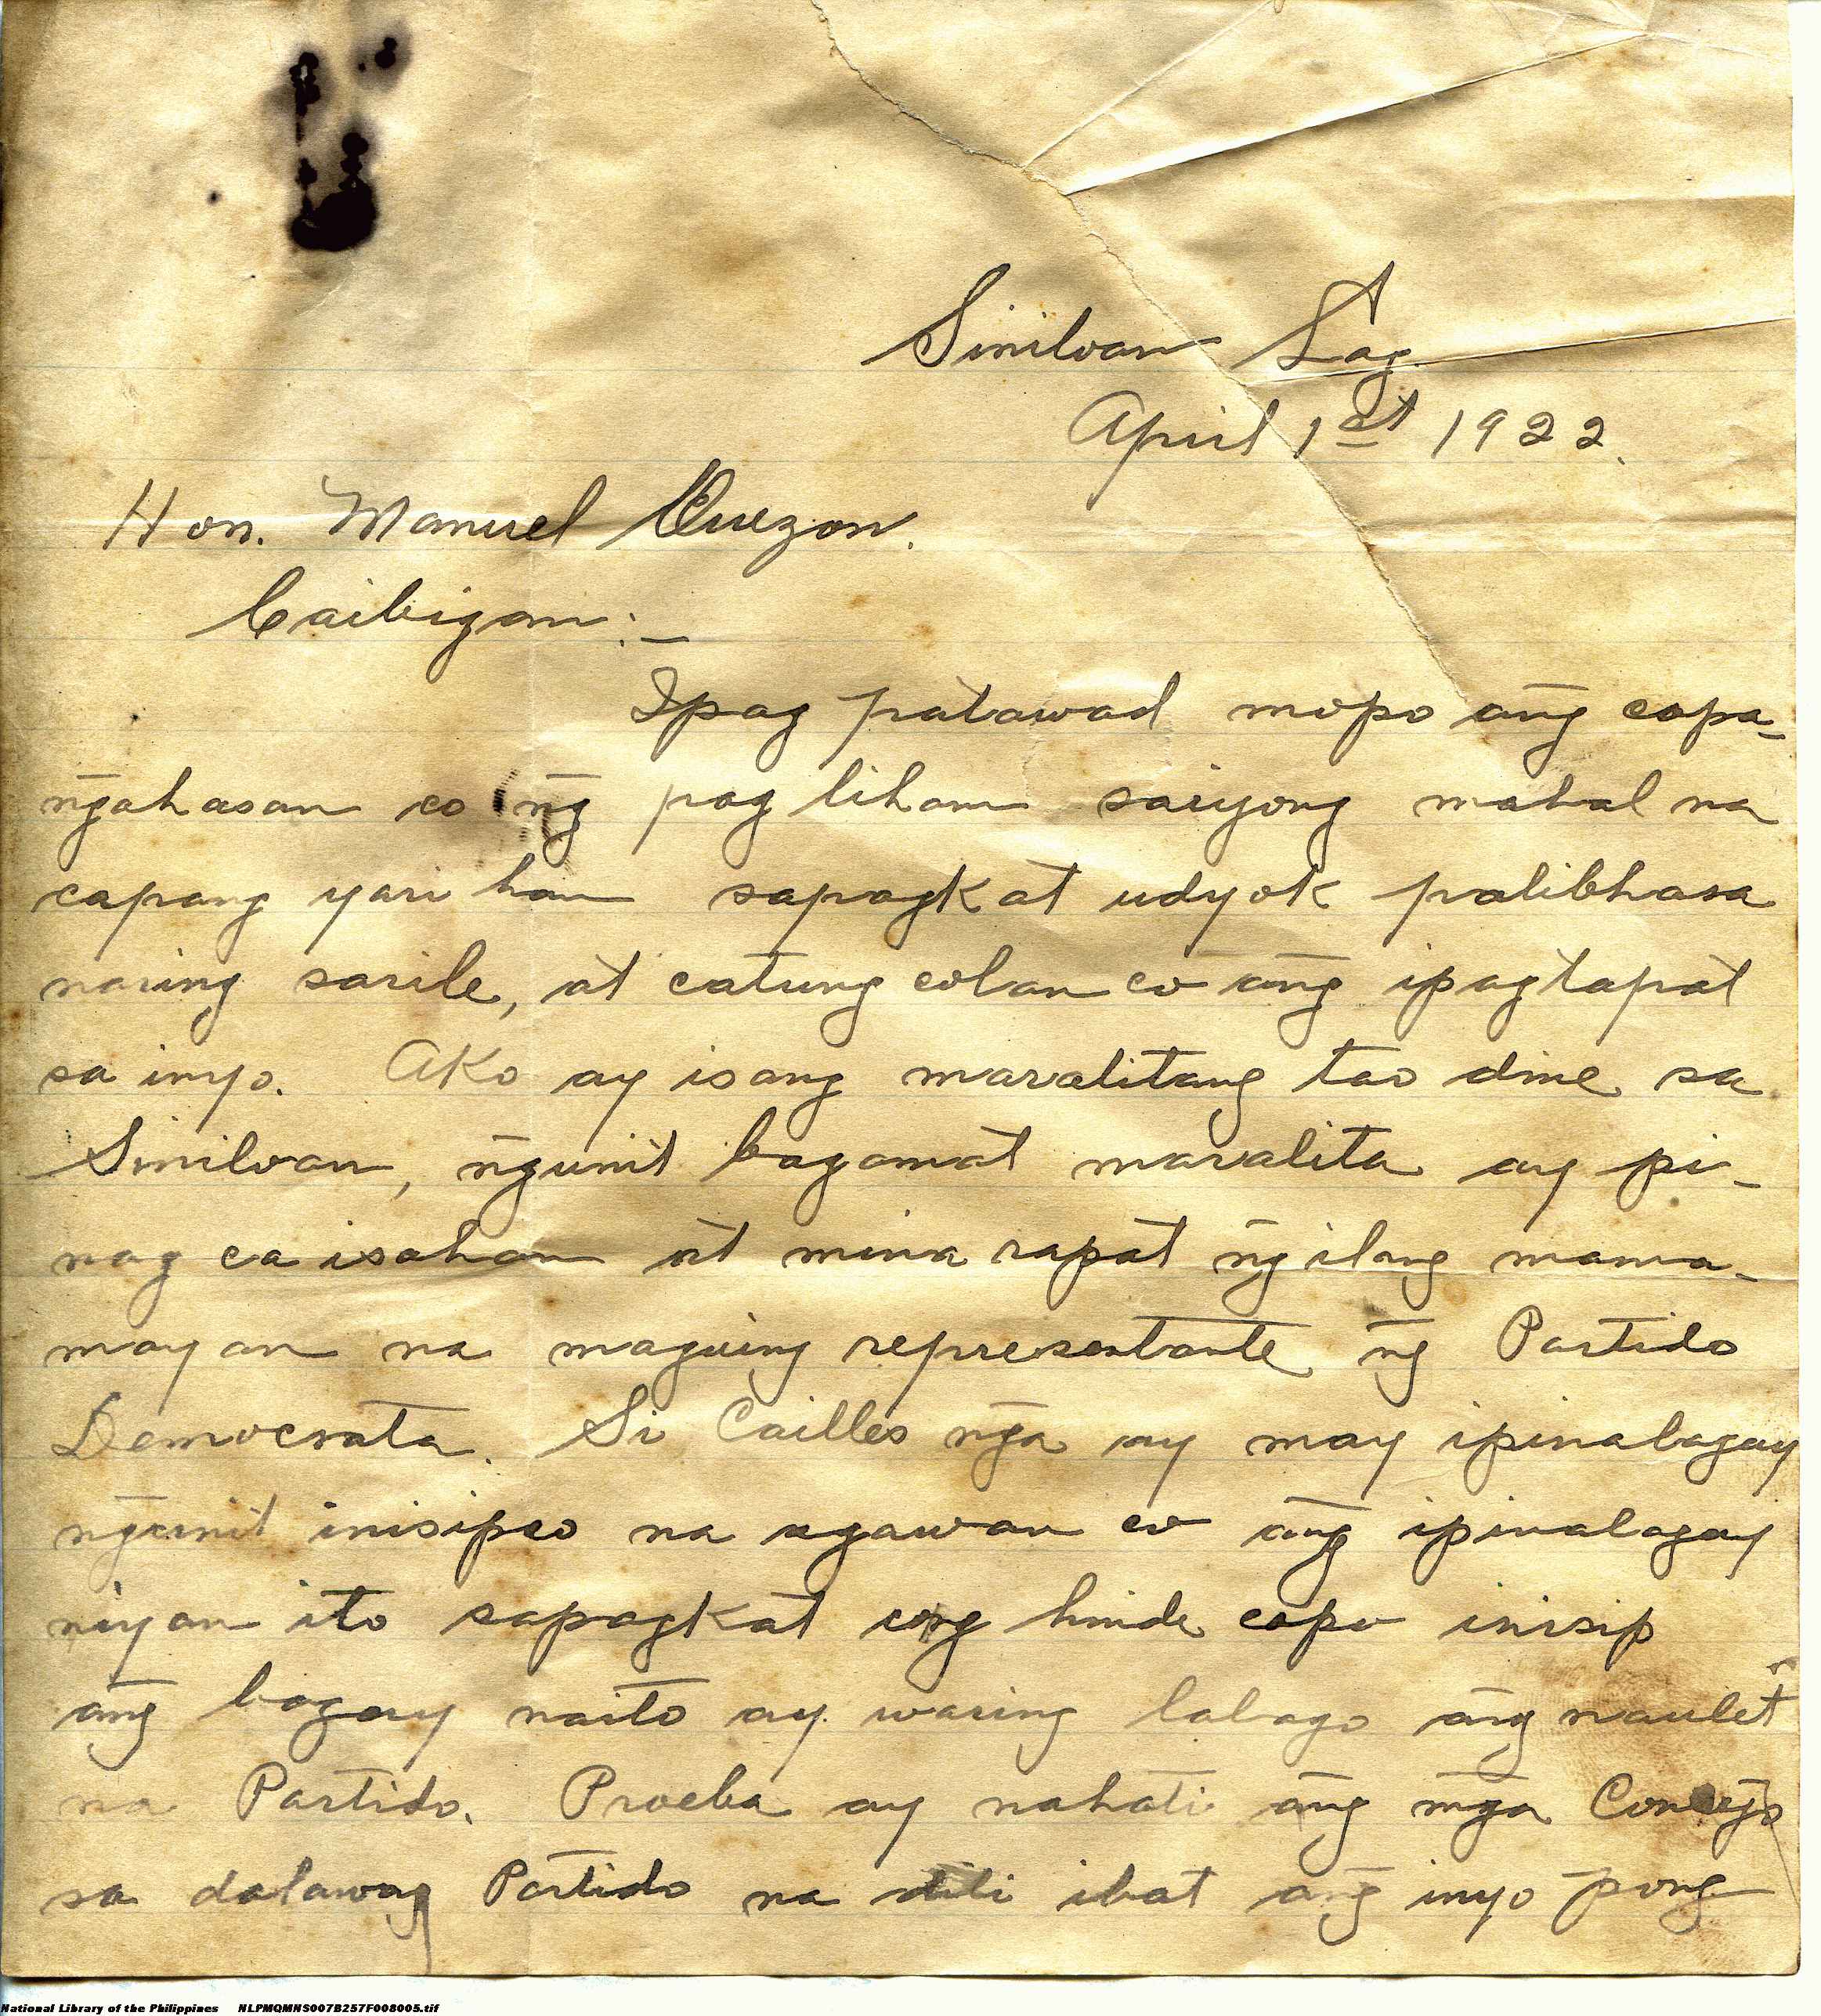 Siniloan Lag.
April 1st 1922.
Hon. Manuel Quezon.
Caibigan:—
Ipag patawad mopo ang capa-
ngahasan co ng pag liham saiyong mahal na
capang yari han sapagkat udyok palibhasa
naring sarile, at catung colan co ang ipagtapat
sa inyo. Ako ay isang maralitang tao dine sa
Siniloan, ngunit bagamat maralita ay pi-
nag ca isahan at mina rapat ng ilang mama-
mayan na maguing representante ng Partido
Democrata. Si Cailles nga ay may ipinalagay
ngunit inisipco na agawan co ang ipinalagay
niyan ito sapagkat cong hinde copo inisip
ang bagay naito ay waring lalago ang naulet
na Partido. Proeba ay nahati ang mga Concejo
sa dalawag Partido na ibat ang inyo pong
National Library of the Philippines NLPMQMNS007B257F008005.tif